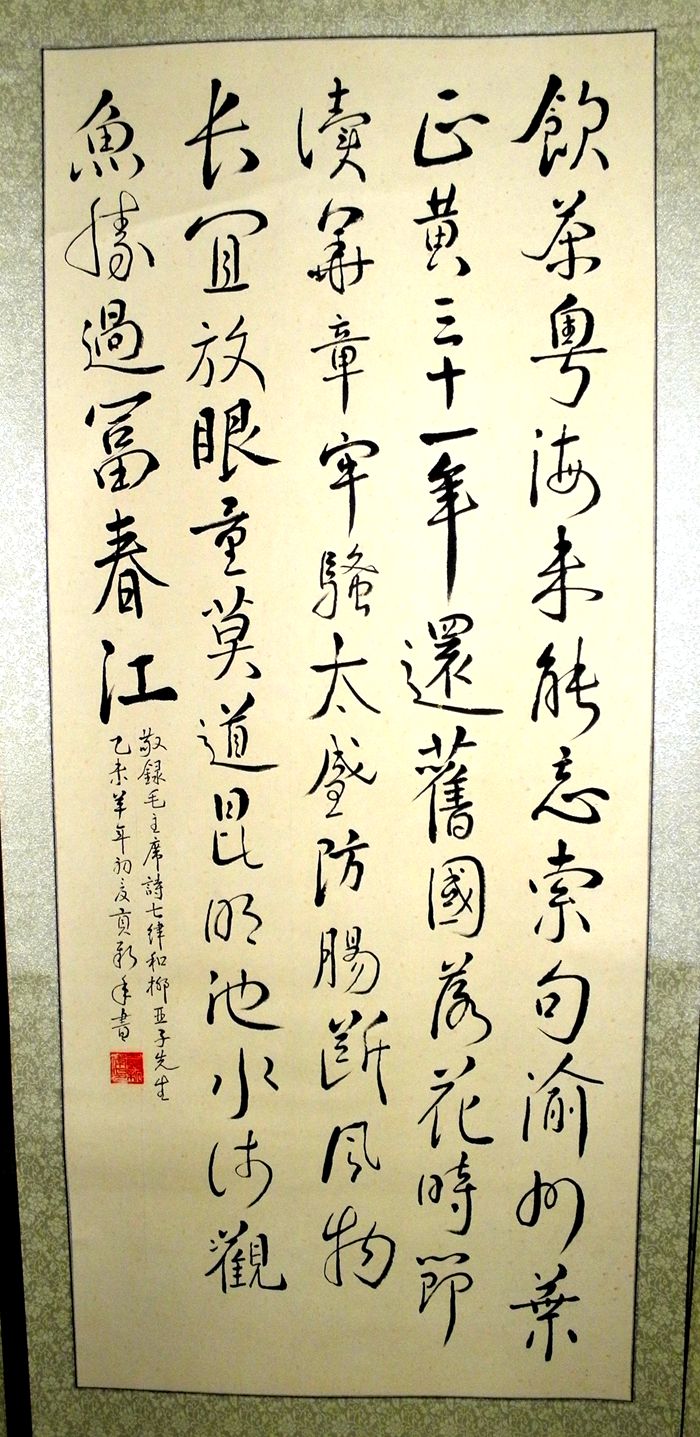 飲茶粵海未能忘索句渝州葉
正黃三十一年還舊國落花時節
讀華章牢騷太盛防腸斷風物
长宜放眼量莫道昆明池水浅觀
魚勝過富春江
敬録毛主席詩七律和柳亞子先生
乙未羊年初夏 年書